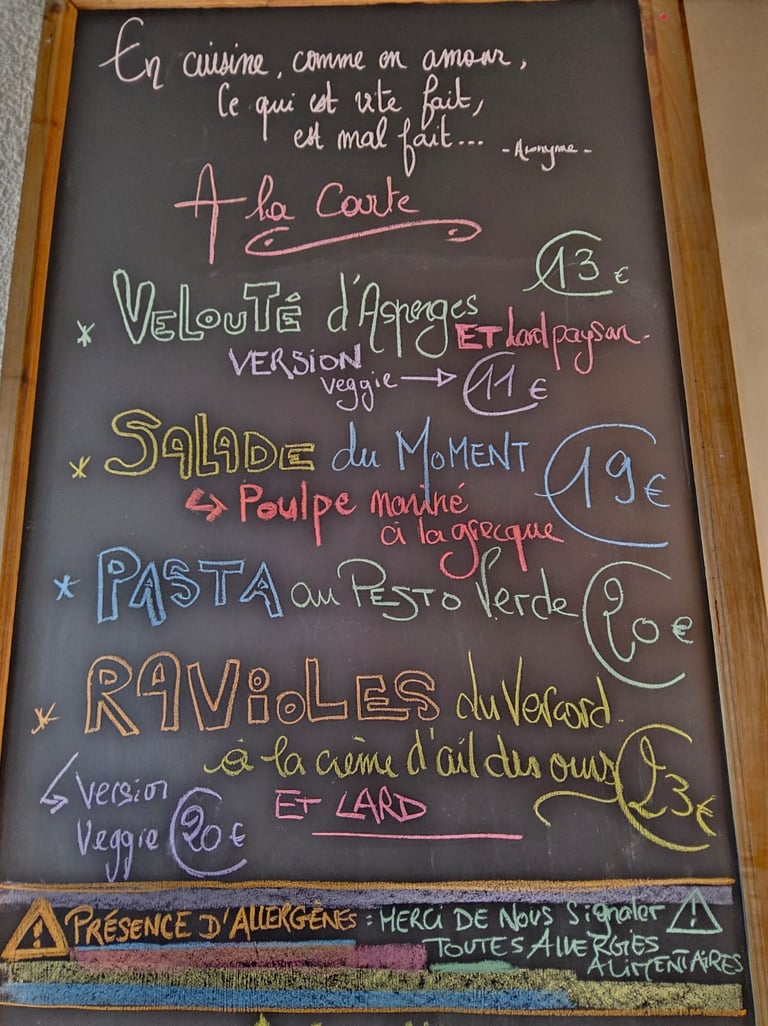 En cuisine, comme en amour,
Ce qui est vite fait,
est mal fait... - Anonyme -
A la Carte
* VELOUTÉ d'Asperges 13 €
ET Lard paysan.
VERSION
veggie → 11 €
* SALADE du MOMENT 19 €
↳ Poulpe mariné
à la grecque
* PASTA au PESTO Verde 20 €
* RAViOLES du Vercord.
à la crème d'ail des ours 23 €
ET LARD
↳ Version
Veggie 20 €
⚠ PRÉSENCE D'ALLERGÈNES : MERCI DE NOUS Signaler ⚠
TOUTES ALLERGIES
ALIMENTAIRES